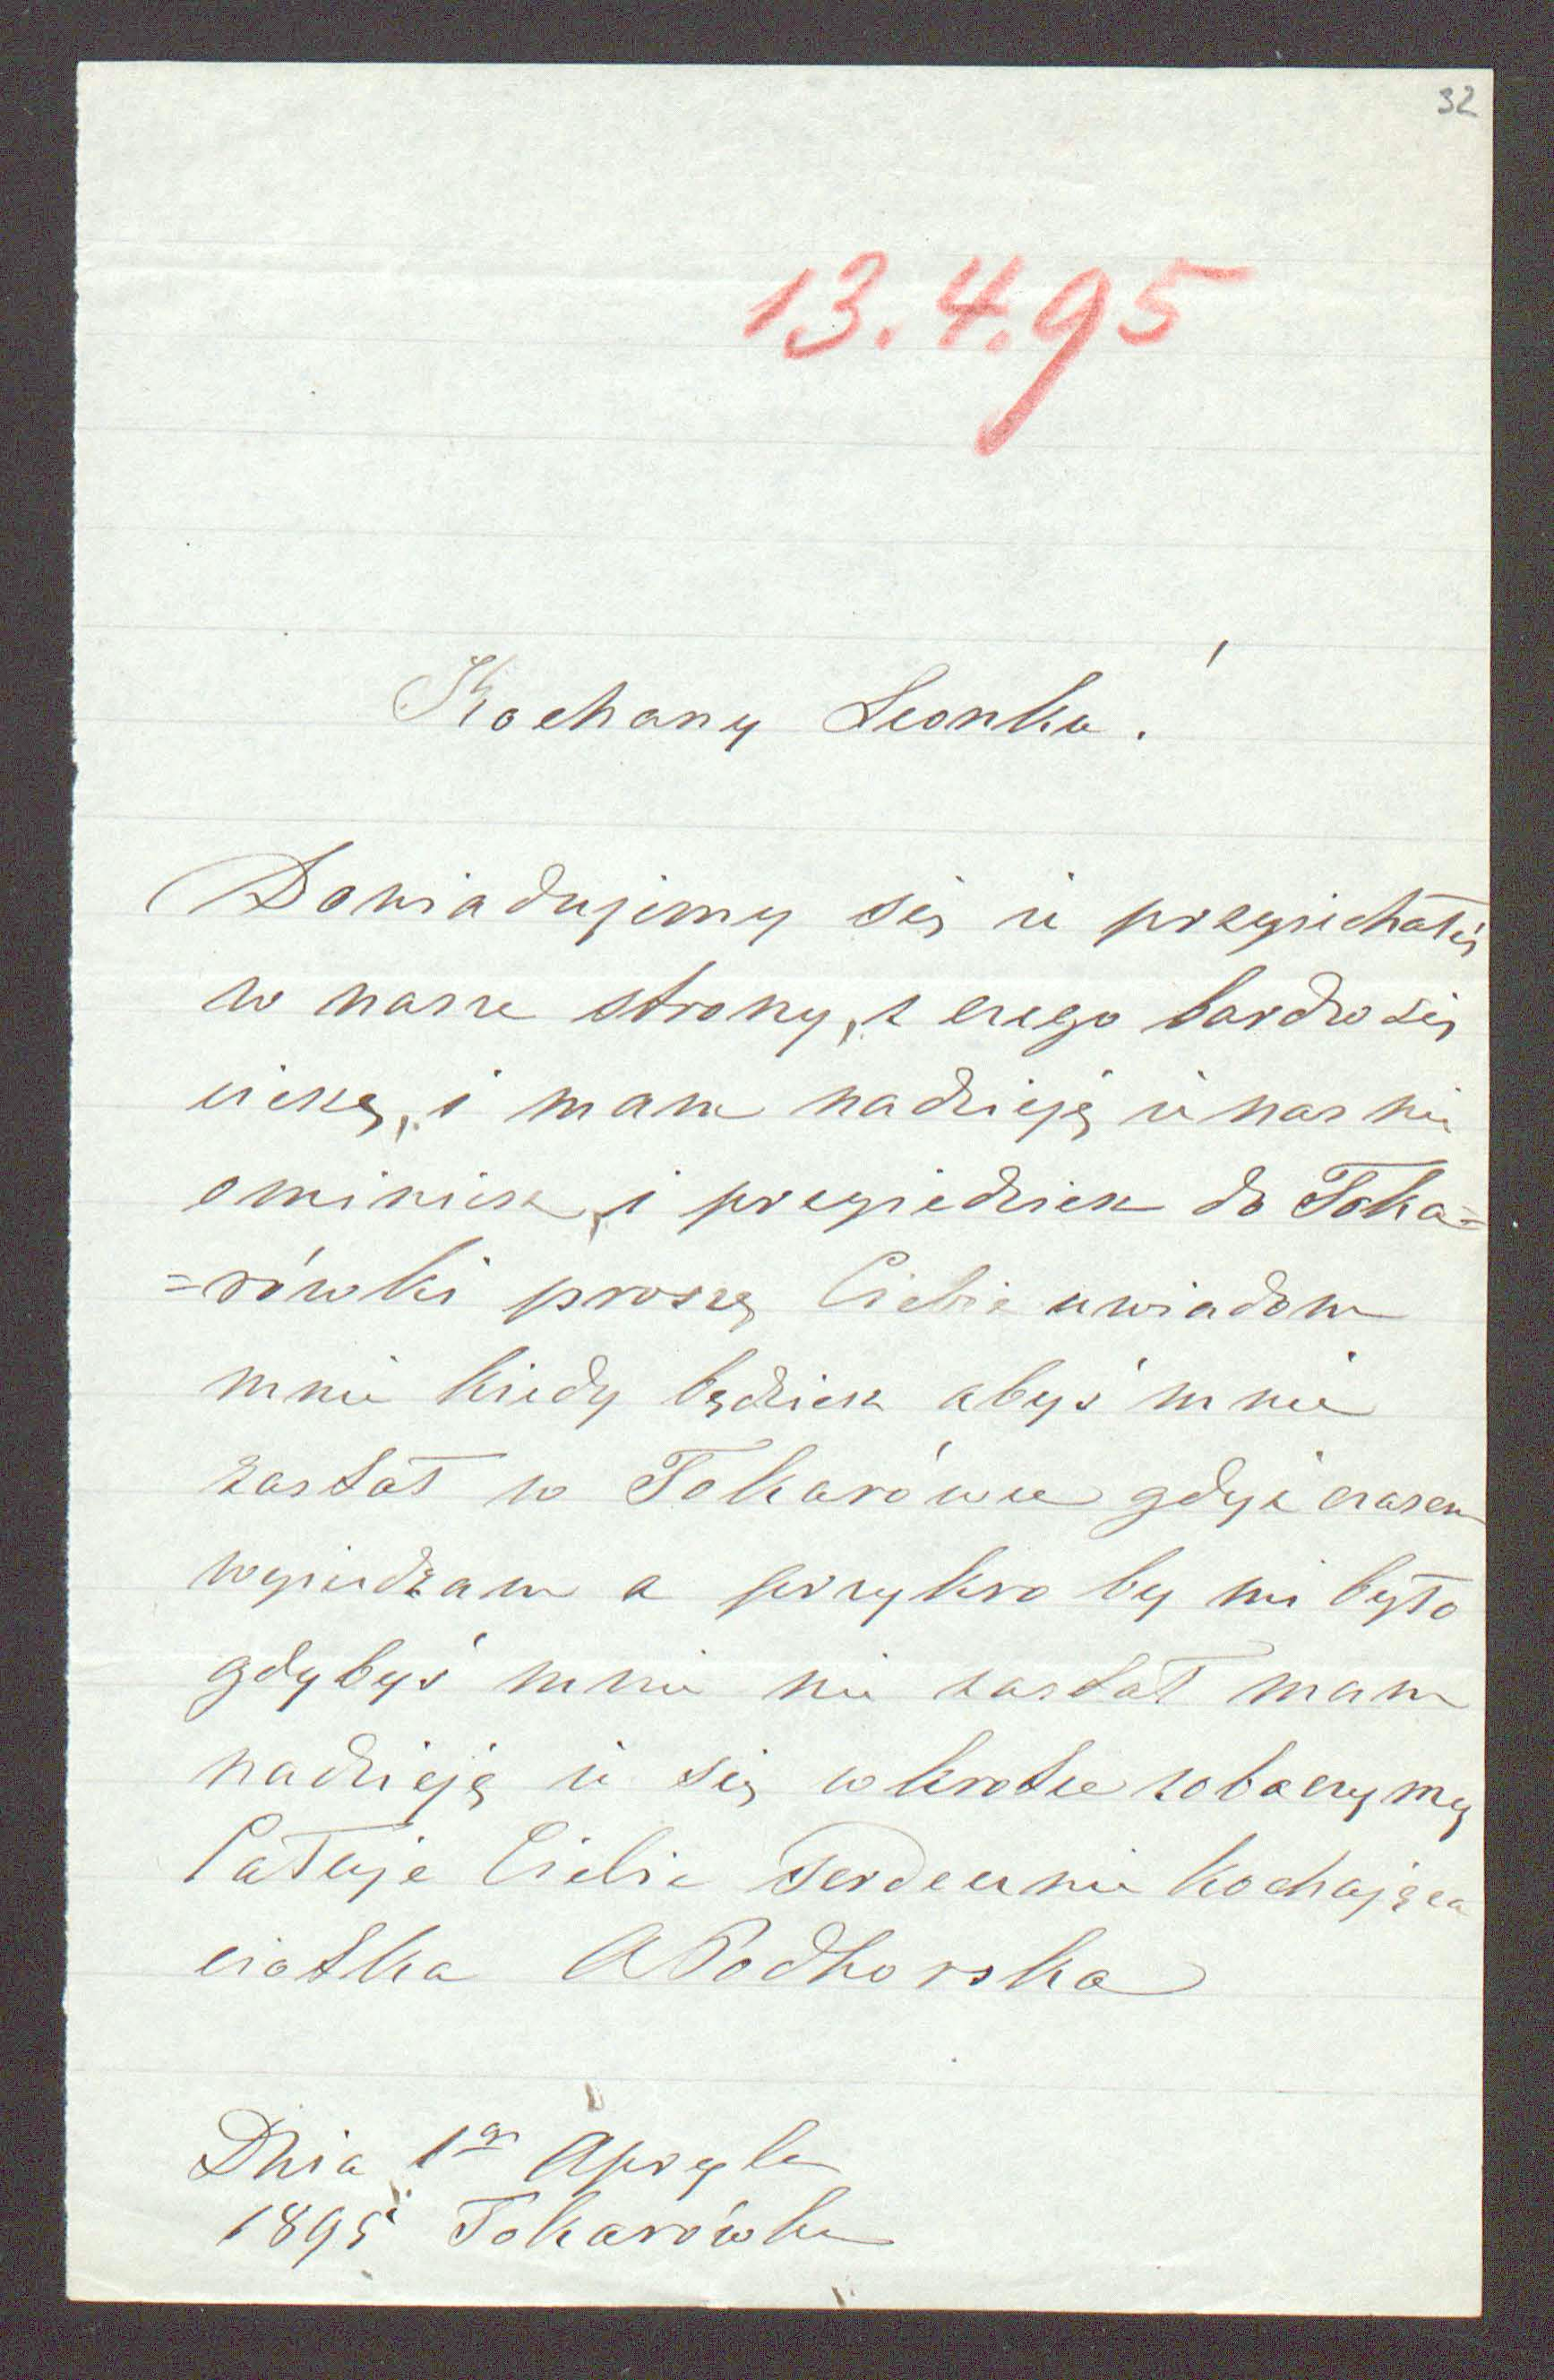 32
13.4.95
Kochany Leonku!
Dowiadujemy się iż przyjechałeś
w nasze strony, z czego bardzo się
cieszę, i mam nadzieję iż nas nie
ominiesz, i przyjedziesz do Toka=
=rówki proszę Ciebie uwiadom
mnie kiedy będziesz abyś mnie
zastał w Tokarówce gdyż czasem
wyjeżdżam a przykro by mi było
gdybyś mnie nie zastał mam
nadzieję iż się wkrotce zobaczymy
Całuje Ciebie serdecznie kochająca
ciotka A Podhorska
Dnia 1go Apryla
1895 Tokarówka